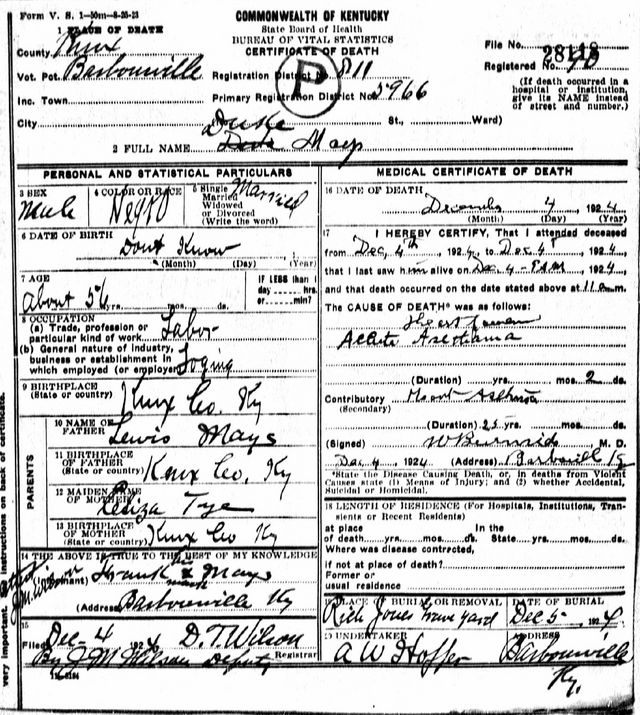 Form V. S. 1—50m—8-25-23
COMMONWEALTH OF KENTUCKY
State Board of Health
BUREAU OF VITAL STATISTICS
CERTIFICATE OF DEATH
1 PLACE OF DEATH
County Knox
Vot. Pct. Barbourville
Inc. Town
City
File No. 28118
Registered No.
Registration District No. 811
Primary Registration District No. 5966
P
(If death occurred in a hospital or institution, give its NAME instead of street and number.)
St., Ward)
2 FULL NAME Duke Mays
PERSONAL AND STATISTICAL PARTICULARS
3 SEX Male
4 COLOR OR RACE Negro
5 Single Married Widowed or Divorced (Write the word) Married
6 DATE OF BIRTH Dont Know
(Month) (Day) (Year)
7 AGE about 56 yrs. mos. ds.
IF LESS than 1 day hrs. or min?
8 OCCUPATION
(a) Trade, profession or particular kind of work Labor
(b) General nature of industry, business or establishment in which employed (or employer) Loging
9 BIRTHPLACE (State or country) Knox Co. Ky
PARENTS
10 NAME OF FATHER Lewis Mays
11 BIRTHPLACE OF FATHER (State or country) Knox Co. Ky
12 MAIDEN NAME OF MOTHER Tye
13 BIRTHPLACE OF MOTHER (State or country) Knox Co Ky
14 THE ABOVE IS TRUE TO THE BEST OF MY KNOWLEDGE
(Informant) Frank his x mark Mays
J.M. Wilson
(Address) Barbourville Ky
15
Filed Dec-4 1924 D. T. Wilson Registrar
By J M Wilson Deputy
11-3184
MEDICAL CERTIFICATE OF DEATH
16 DATE OF DEATH December 4 1924
(Month) (Day) (Year)
17 I HEREBY CERTIFY, That I attended deceased
from Dec, 4th 1924, to Dec 4 1924,
that I last saw him alive on Dec 4 - 8 AM, 1924
and that death occurred on the date stated above at 11 a.m.
The CAUSE OF DEATH* was as follows:
Heart
(Duration) yrs. mos. 2 ds.
Contributory
(Secondary)
(Duration) 25 yrs. mos. ds.
(Signed) M. D.
Dec 4 1924 (Address) Barbourville Ky
*State the Disease Causing Death, or, in deaths from Violent
Causes state (1) Means of Injury; and (2) whether Accidental,
Suicidal or Homicidal.
18 LENGTH OF RESIDENCE (For Hospitals, Institutions, Transients or Recent Residents)
At place of death yrs. mos. ds. In the State yrs. mos. ds.
Where was disease contrected,
if not at place of death?
Former or
usual residence
19 PLACE OF BURIAL OR REMOVAL Rich Jones Grave yard
DATE OF BURIAL Dec 5- 1924
20 UNDERTAKER A W Hoffer
ADDRESS Barbourville Ky.
very important. instructions on back of certificate.